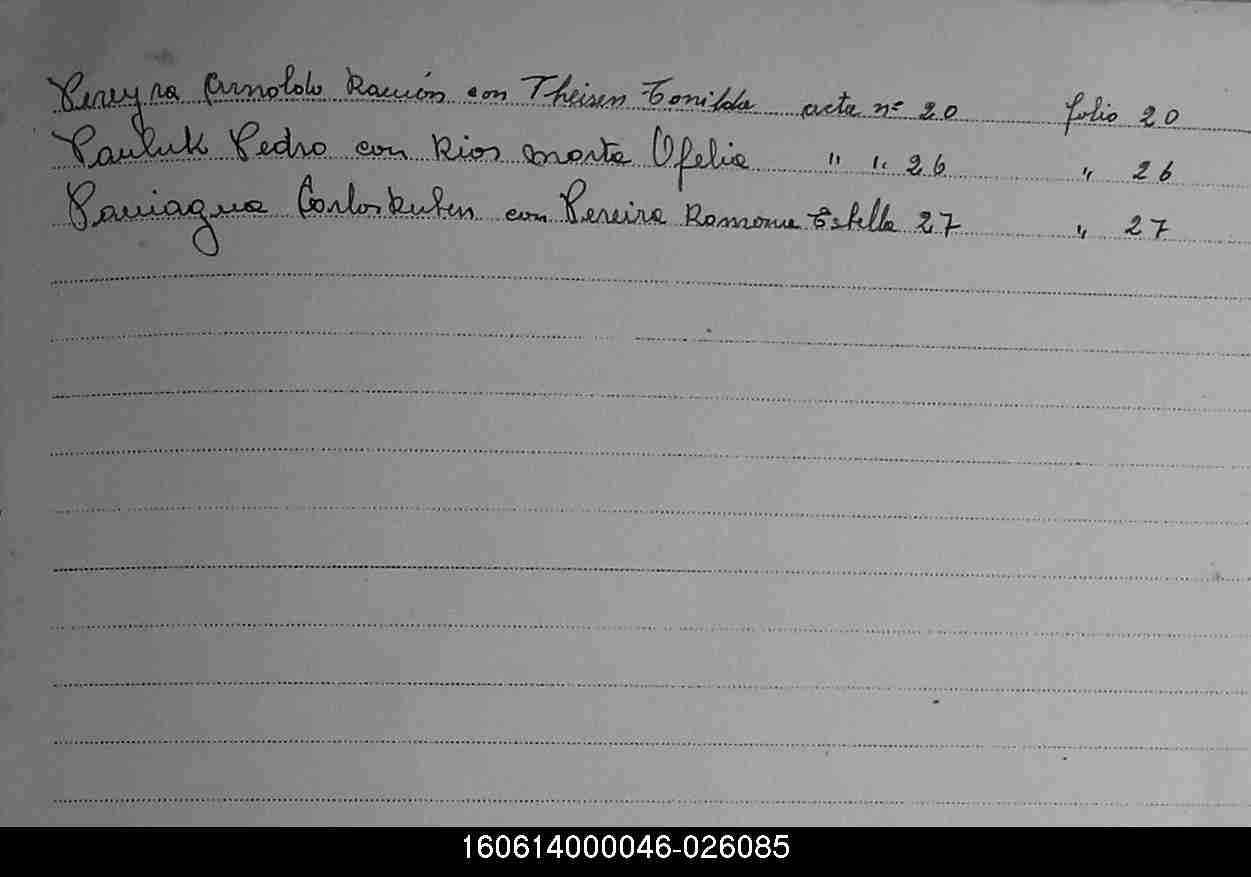 Pereyra Arnoldo Ramón con Theisen Tonilda acta nº 20 folio 20
Pauluk Pedro con Rios Marta Ofelia " " 26 " 26
Paniagua Carlos Ruben con Pereira Ramona Estella 27 " 27
160614000046-026085